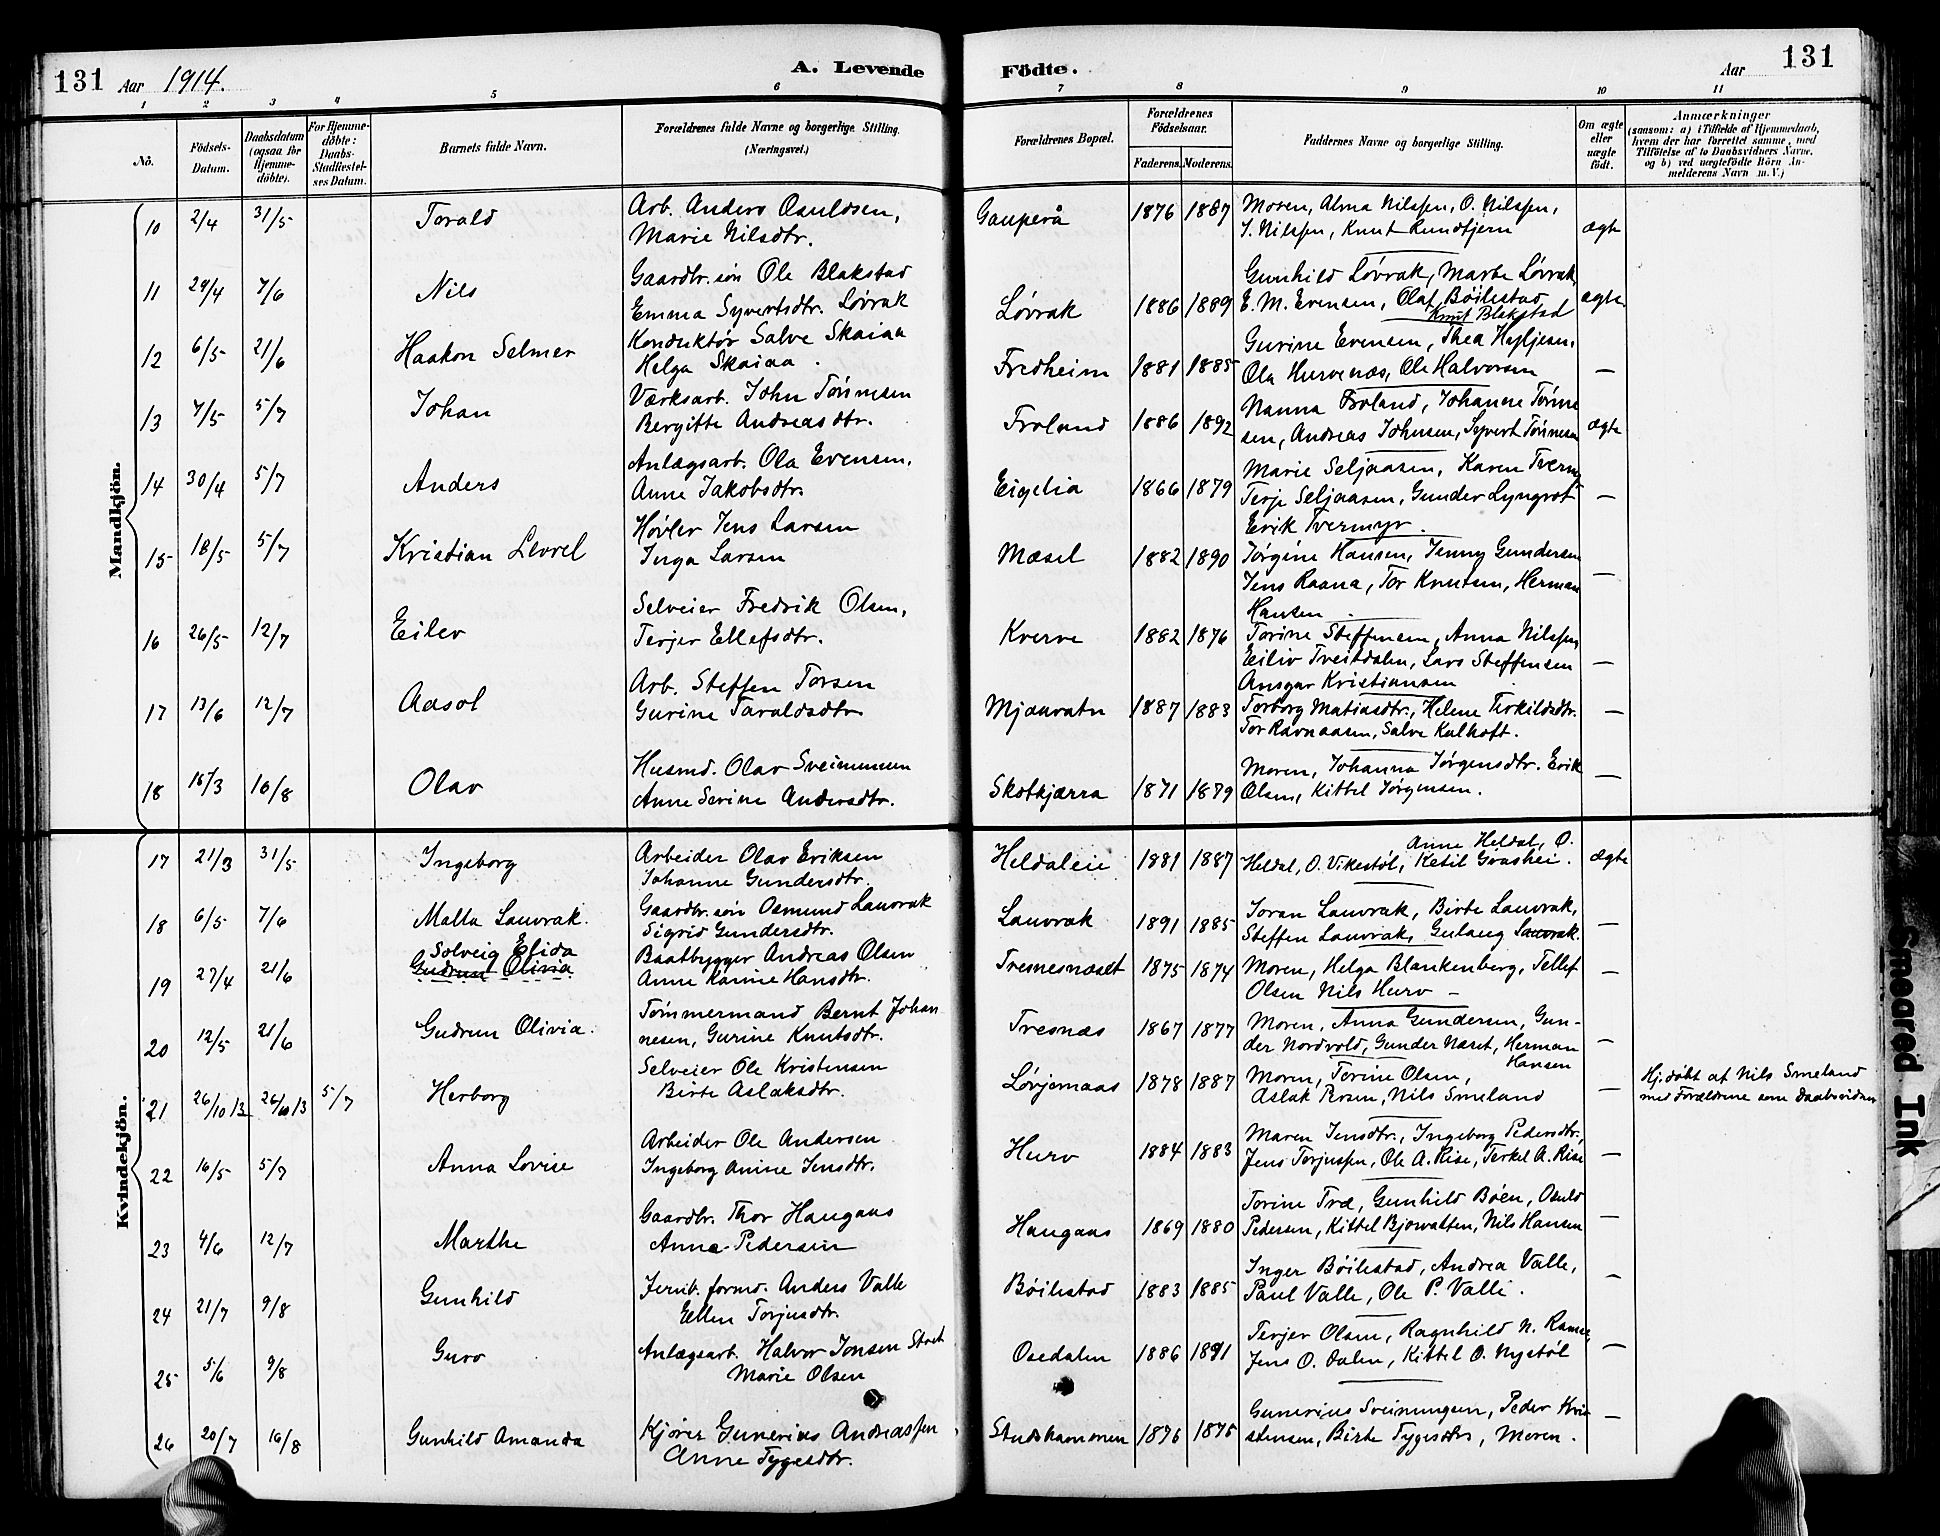 131 Aar 1914. A. Levende Födte. Aar 131
1 2 3 4 5 6 7 8 9 10 11
No.
Födsels-Datum.
Daabsdatum (ogsaa for Hjemme-döbte).
For Hjemme-döbte: Daabs-Stadfæstel-ses Datum.
Barnets fulde Navn.
Forældrenes fulde Navne og borgerlige Stilling. (Næringsvei.)
Forældrenes Bopæl.
Forældrenes Födselsaar.
Faderens. Moderens.
Faddernes Navne og borgerlige Stilling.
Om ægte eller uægte födt.
Anmærkninger
(saasom: a) i Tilfælde af Hjemmedaab, hvem der har forrettet samme, med Tilföielse af to Daabsvidners Navne, og b) ved uægtefödte Börn An-melderens Navn m. V.)
Mandkjön.
10 2/4 31/5 Torald Arb. Anders Osuldsen, Marie Nilsdtr. Gauperå 1876 1887 Moren, Alma Nilssen, O. Nilssen, S. Nilssen, Knut Rundtjern ægte
11 29/4 7/6 Nils Gaardbr. søn Ole Blakstad Emma Syvertsdtr. Løvrak Løvrak 1886 1889 Gunhild Løvrak, Marte Løvrak, E. M. Evensen, Olaf Bøilestad Knut Blakstad ægte
12 6/5 21/6 Haakon Selmer Konduktør Salve Skaiaa Helga Skaiaa. Fredheim 1881 1885 Gurine Evensen, Thea Ola Hurvenæs, Ole Halvorsen —
13 7/5 5/7 Johan Værksarb. John Tønnesen Bergitte Andreasdtr. Froland 1886 1892 Nanna Froland, Johanne Tønne sen, Andreas Johnsen, Syvert Tønnesen ægte
14 30/4 5/7 Anders Anlægsarb. Ola Evensen, Anne Jakobsdtr. Eigelia 1866 1879 Marie Seljaasen, Karen Tverm Terje Seljaasen, Gunder Lyngrot Erik Tvermyr. —
15 18/5 5/7 Kristian Høvler Jens Larsen Inga Larsen Mæsel 1882 1890 Jørgine Hansen, Jenny Gundersen Jens Raana, Tor Knutsen, Herman Hansen —
16 26/5 12/7 Eilev Selveier Fredrik Olsen, Terjer Ellefsdtr. Kverve 1882 1876 Torine Steffensen, Anna Nilssen, Eiliv Tveitdalen, Lars Steffensen Ansgar Kristiansen —
17 13/6 12/7 Aasol Arb. Steffen Torsen Gurine Taraldsdtr. Mjaavatn 1887 1883 Torborg Matiasdtr., Helene Terkildsdtr. Tor Ravnaasen, Salve Kalhoft. —
18 15/3 16/8 Olav Husmd. Olav Sveinunsen Anne Serine Andersdtr. Skotkjærra 1871 1879 Moren, Johanna Jørgensdtr. Erik Olsen, Kittel Jørgensen. —
Kvindekjön.
17 21/3 31/5 Ingeborg Arbeider Olav Eriksen Johanne Gundersdtr. Heldaleie 1881 1887 Anne Heldal, O. Heldal, O. Vikestøl, Ketil Graahei. ægte
18 6/5 7/6 Malla Lauvrak. Gaardbr. søn Osmund Lauvrak Sigrid Gundersdtr. Lauvrak 1891 1885 Joran Lauvrak, Birte Lauvrak, Steffen Lauvrak, Gulaug Lauvrak. —
19 27/4 21/6 Solveig Elida Gudrun Olivia Baatbygger Andreas Olsen Anne Karine Hansdtr. Tresnesnæset 1875 1874 Moren, Helga Blankenberg, Tellef Olsen Nils Hurv —
20 12/5 21/6 Gudrun Olivia. Tømmermand Bernt Johan nesen, Gurine Knutsdtr. Tresnæs 1867 1877 Moren, Anna Gundersen, Gun-der Nordvold, Gunder Næset, Herman Hansen —
21 26/10 13 26/10 13 5/7 Herborg Selveier Ole Kristensen Birte Aslaksdtr. Løvjomaas 1878 1887 Moren, Torine Olsen, Aslak Nils Smeland — Hj. døbt af Nils Smeland med Forældrene som Daabsvidner
22 16/5 5/7 Anna Lovise Arbeider Ole Andersen Ingeborg Amine Jensdtr. Hurv 1884 1883 Maren Jensdtr., Ingeborg Pedersdtr., Jens Torjussen, Ole A. Rise, Terkel A. Rise —
23 4/6 12/7 Marthe Gaardbr. Thor Haugaas Anna Pedersen Haugaas 1869 1880 Torine Træ, Gunhild Bøen, Osuld Pedersen, Kittel Bjorvatten, Nils Hansen —
24 21/7 9/8 Gunhild Jernb. formd. Anders Valle Ellen Torjusdtr. Bøilestad 1883 1885 Inger Bøilestad, Andrea Valle, Paul Valle, Ole P. Valle. —
25 5/6 9/8 Guro Anlægsarb. Halvor Jonsen Marie Olsen Osedalen 1886 1891 Terjer Olsen, Ragnhild N. Jens O. Dalen, Kittel O. Nystøl —
26 20/7 16/8 Gunhild Amanda Kjører Gunerius Andreassen Anne Tygesdtr. Studshammen 1876 1875 Gunerius Sveinungsen, Peder Kri stensen, Birte Tygesdtr, Moren. —
Smeared Ink